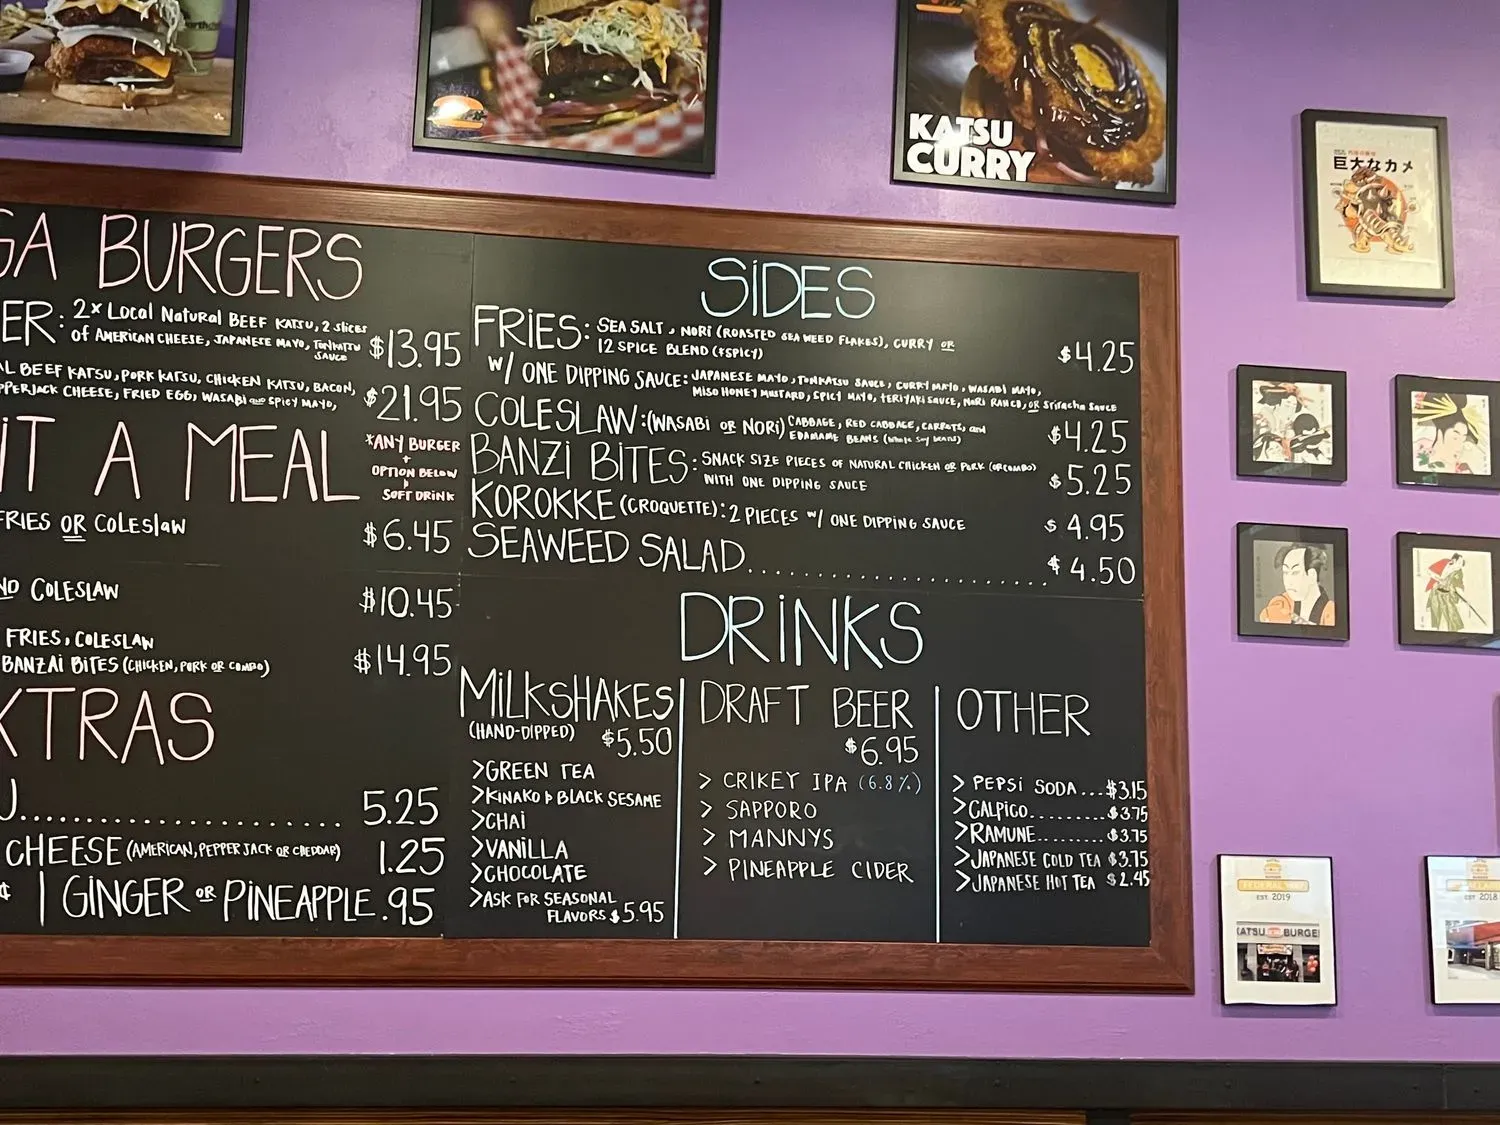 KATSU
CURRY
巨大なカメ
GA BURGERS
ER: 2x LOCAL NATURAL BEEF KATSU, 2 SLICES
OF AMERICAN CHEESE, JAPANESE MAYO, TONKATSU
SAUCE
$13.95
AL BEEF KATSU, PORK KATSU, CHICKEN KATSU, BACON,
PPERJACK CHEESE, FRIED EGG, WASABI AND SPICY MAYO,
$21.95
IT A MEAL
*ANY BURGER
+
OPTION BELOW
+
SOFT DRINK
FRIES OR COLESLAW
$6.45
ND COLESLAW
$10.45
FRIES, COLESLAW
BANZAI BITES (CHICKEN, PORK OR COMBO)
$14.95
XTRAS
U.......................... 5.25
CHEESE (AMERICAN, PEPPER JACK OR CHEDDAR) 1.25
| GINGER OR PINEAPPLE .95
SIDES
FRIES: SEA SALT, NORI (ROASTED SEAWEED FLAKES), CURRY OR
12 SPICE BLEND (*SPICY)
$4.25
W/ ONE DIPPING SAUCE: JAPANESE MAYO, TONKATSU SAUCE, CURRY MAYO, WASABI MAYO,
MISO HONEY MUSTARD, SPICY MAYO, TERIYAKI SAUCE, NORI RANCH, OR SRIRACHA SAUCE
COLESLAW: (WASABI OR NORI) CABBAGE, RED CABBAGE, CARROTS, AND
EDAMAME BEANS (WHOLE SOY BEANS)
$4.25
BANZI BITES: SNACK SIZE PIECES OF NATURAL CHICKEN OR PORK (OR COMBO)
WITH ONE DIPPING SAUCE
$5.25
KOROKKE (CROQUETTE): 2 PIECES W/ ONE DIPPING SAUCE
$4.95
SEAWEED SALAD......................... $4.50
DRINKS
MILKSHAKES
(HAND-DIPPED) $5.50
>GREEN TEA
>KINAKO & BLACK SESAME
>CHAI
>VANILLA
>CHOCOLATE
>ASK FOR SEASONAL
FLAVORS $5.95
DRAFT BEER
$6.95
> CRIKEY IPA (6.8%)
> SAPPORO
> MANNYS
> PINEAPPLE CIDER
OTHER
> PEPSI SODA...$3.15
>CALPICO..........$3.75
>RAMUNE........$3.75
>JAPANESE COLD TEA $3.75
>JAPANESE HOT TEA $2.45
FEDERAL WAY
EST. 2019
KATSU BURGER
EST. 2018